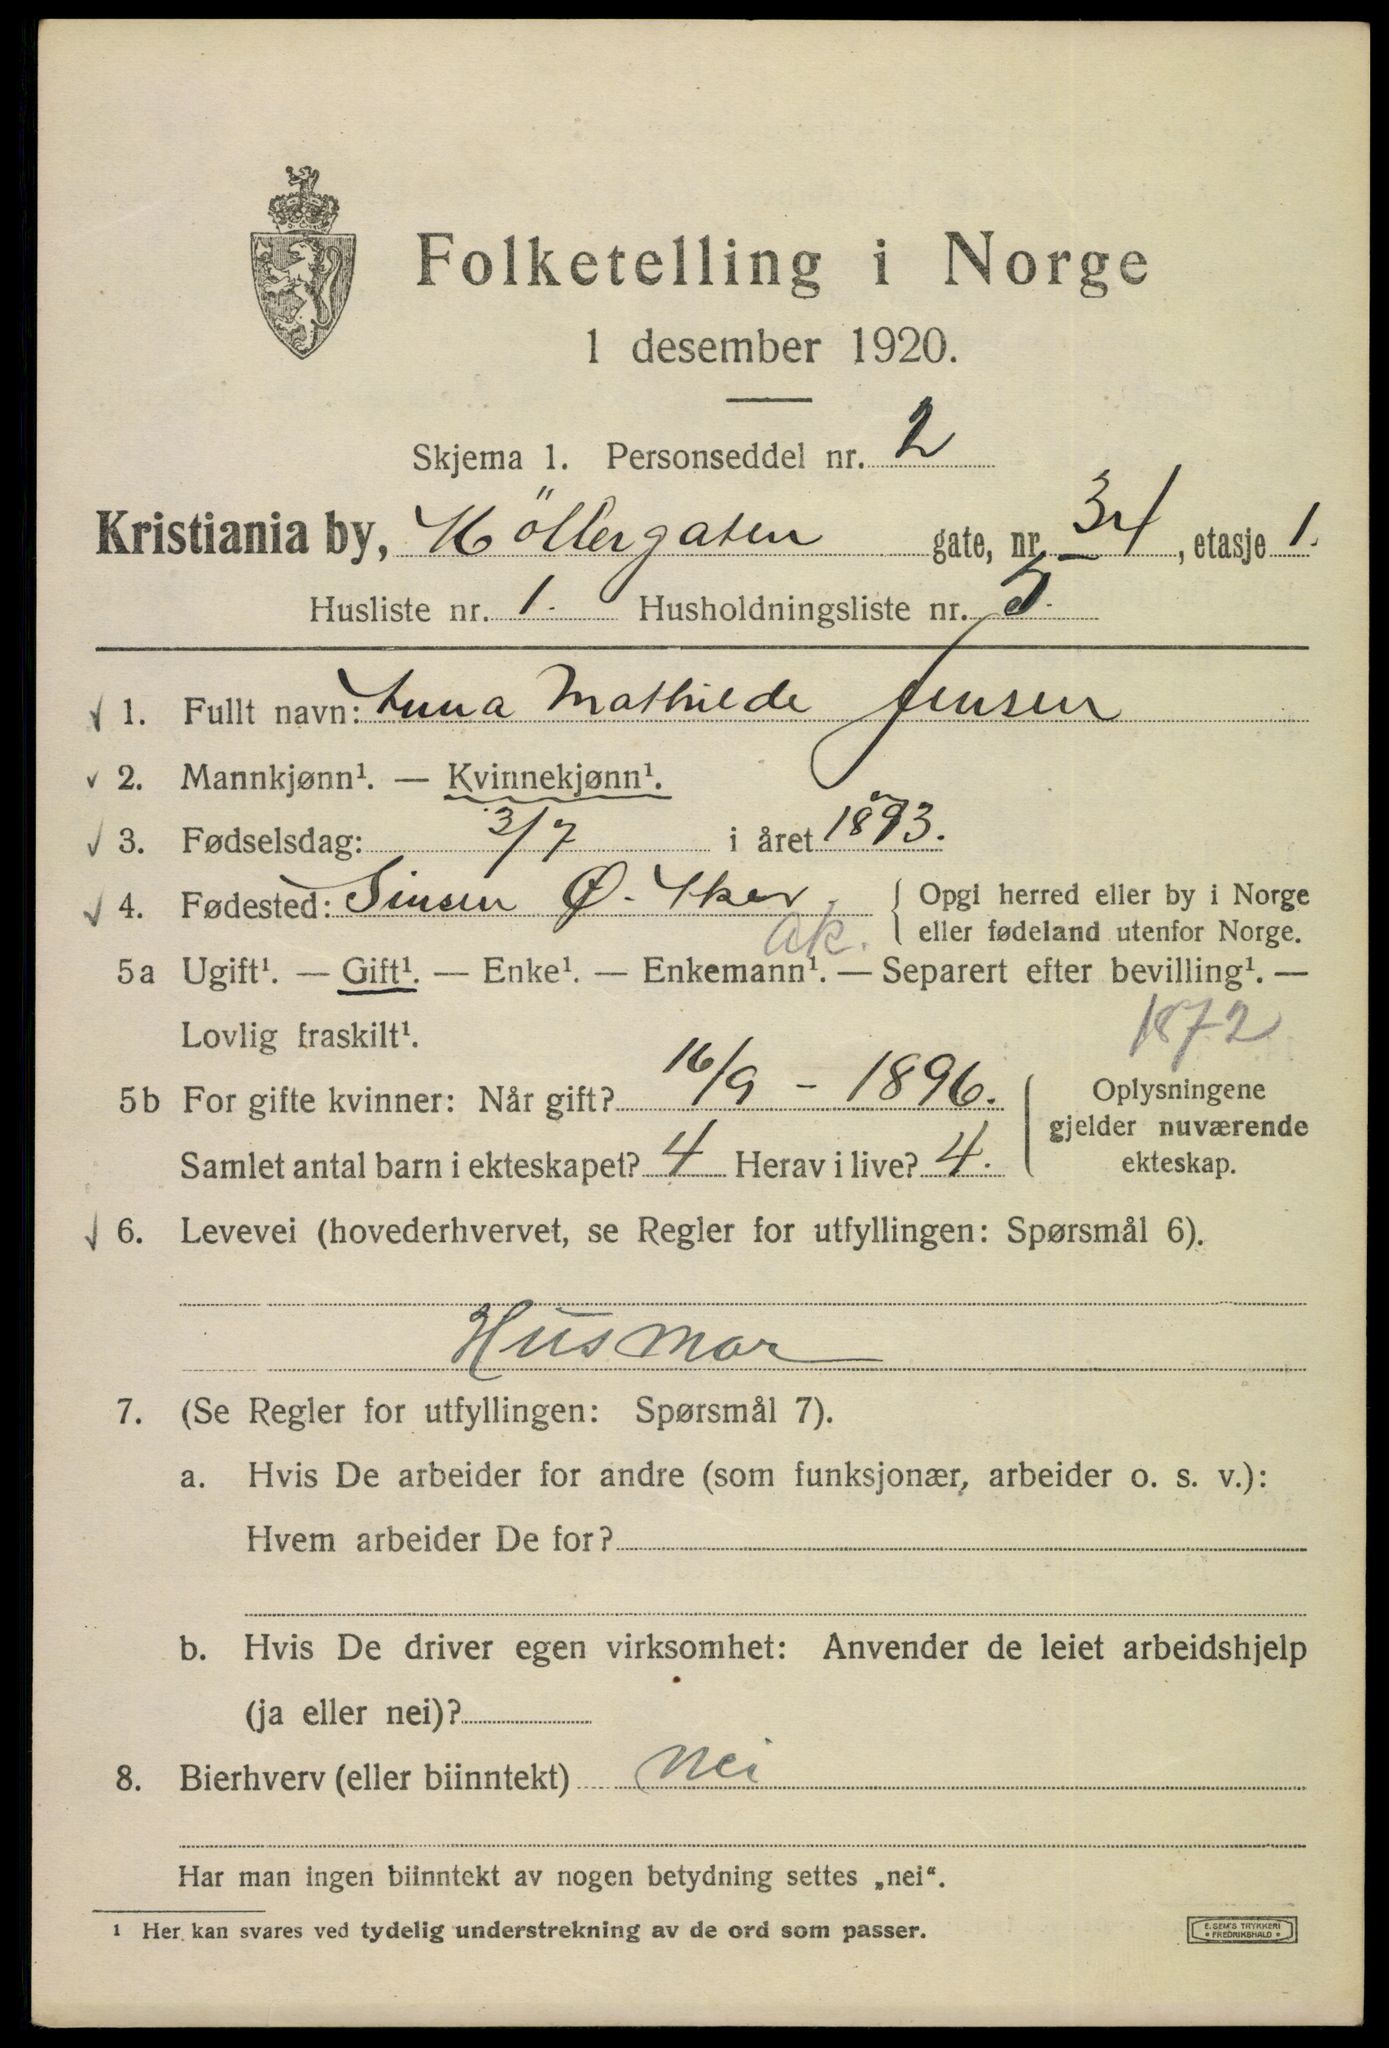 Folketelling i Norge
1 desember 1920.
Skjema 1. Personseddel nr. 2
Kristiania by, Möllergaten gate, nr. 34, etasje 1.
Husliste nr. 1. Husholdningsliste nr. 5.
1. Fullt navn: Anna Mathilde Jensen
2. Mannkjønn¹. — Kvinnekjønn¹.
3. Fødselsdag: 3/7 i året 1893.
4. Fødested: Sinsen Ø. Aker. { Opgi herred eller by i Norge
Ak. eller fødeland utenfor Norge.
5a Ugift¹. — Gift¹. — Enke¹. — Enkemann¹. — Separert efter bevilling¹. —
Lovlig fraskilt¹. 1872
5b For gifte kvinner: Når gift? 16/9 - 1896. { Oplysningene
gjelder nuværende
Samlet antal barn i ekteskapet? 4 Herav i live? 4. ekteskap.
6. Levevei (hovederhvervet, se Regler for utfyllingen: Spørsmål 6).
Husmor
7. (Se Regler for utfyllingen: Spørsmål 7).
a. Hvis De arbeider for andre (som funksjonær, arbeider o. s. v.):
Hvem arbeider De for?
b. Hvis De driver egen virksomhet: Anvender de leiet arbeidshjelp
(ja eller nei)?
8. Bierhverv (eller biinntekt) Nei
Har man ingen biinntekt av nogen betydning settes „nei“.
¹ Her kan svares ved tydelig understrekning av de ord som passer.
E. SEM'S TRYKKERI
FREDRIKSHALD